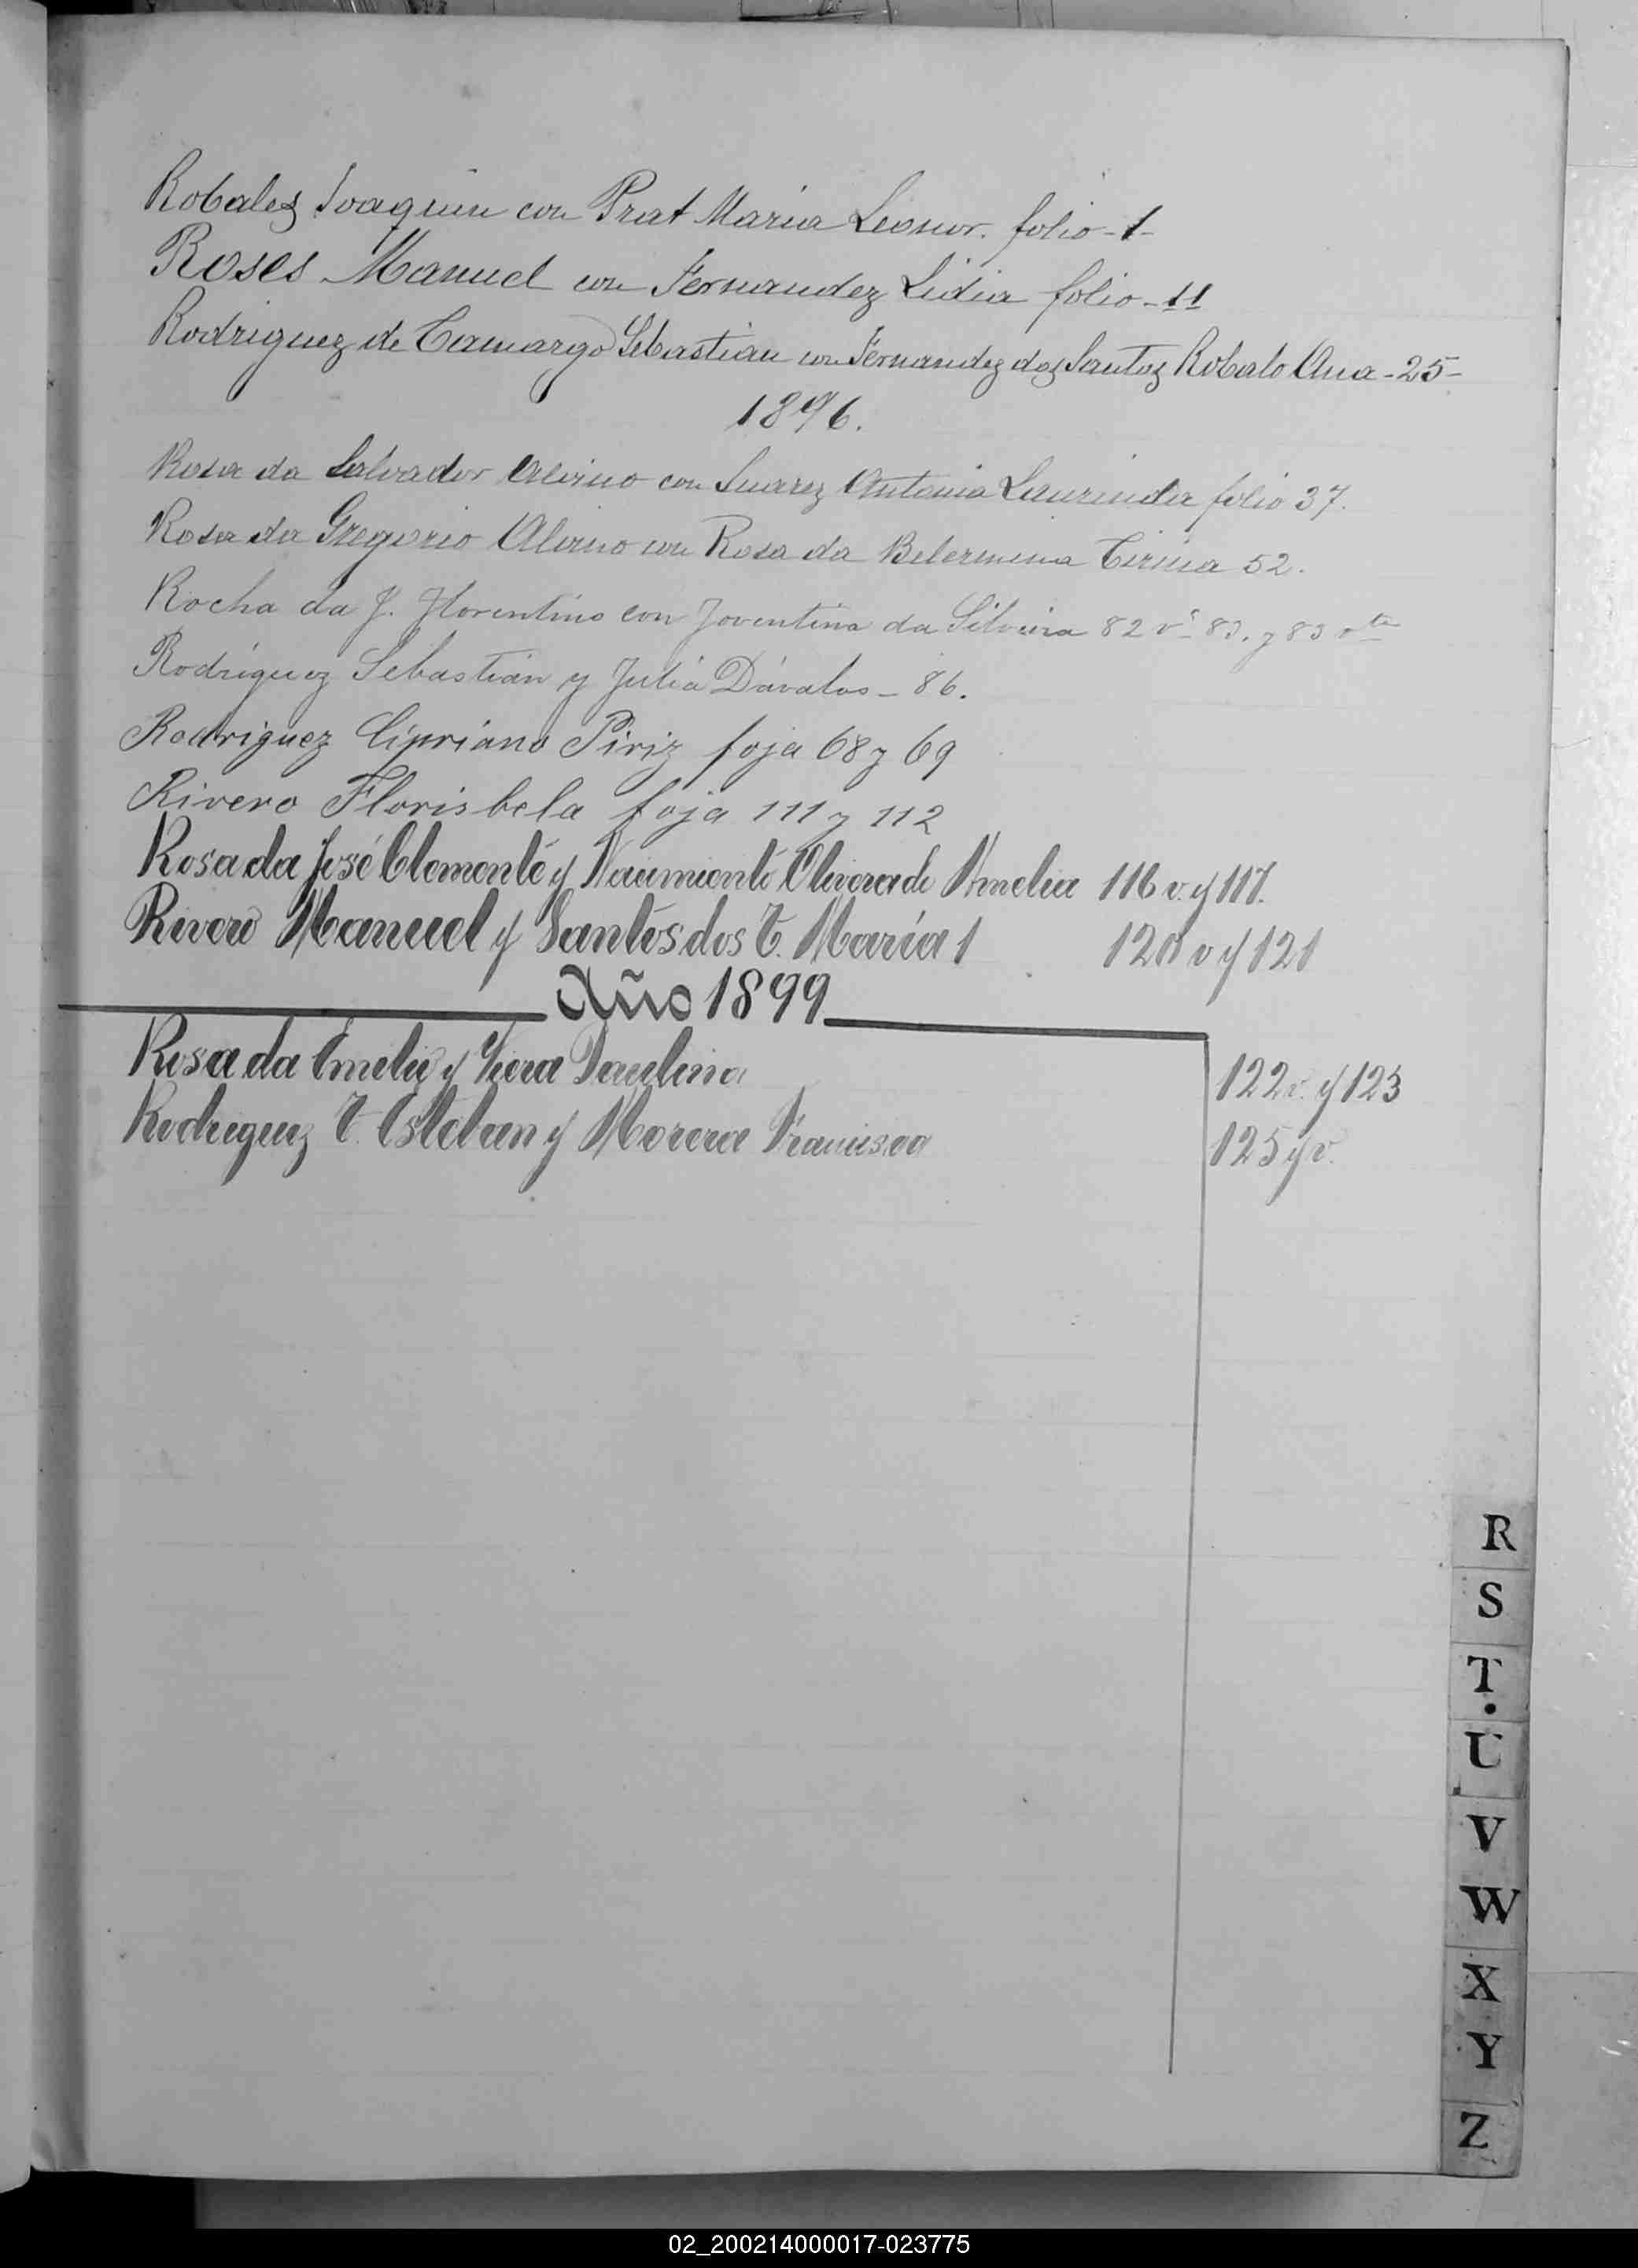 Robales Joaquin con Prat Maria Leonor. folio -1-
Roses Manuel con Fernandez Lidia folio -11
Rodriguez de Camargo Sebastian con Fernandez dos Santos Robalo Ana -25-
1896.
Rosa da Salvador Alvino con Suarez Antonia Laurinda folio 37.
Rosa da Gregorio Alvino con Rosa da Belermina 52.
Rocha da J. Florentino con Joventina da Silveira 82 vta 83. y 83 vta
Rodriguez Sebastián y Julia Dávalos - 86.
Rodriguez Cipriano Piriz foja 68 y 69
Rivero Florisbela foja 111 y 112
Rosa da José Clemente y Nacimiento Olivera de Amelia 116 v. y 117.
Rivero Manuel y Santos dos T. María 1 120 v y 121
Año 1899
Rosa da Emelio y Viera Paulina 122 v. y 123
Rodriguez T. Esteban y Morera Francisca 125 y v.
R
S
T.
U
V
W
X
Y
Z
02_200214000017-023775